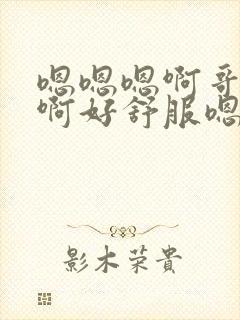 嗯嗯嗯啊哥
啊好舒服嗯
影木荣貴